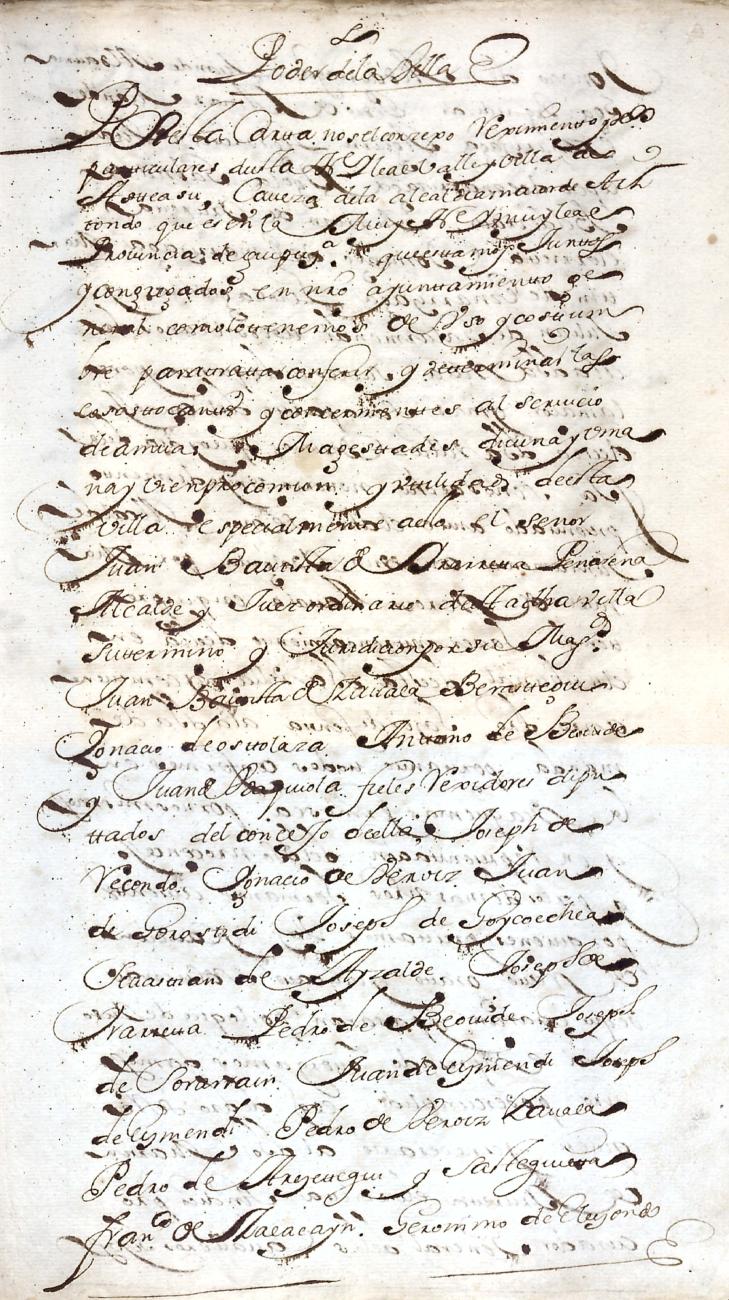 Poder dela Villa
Por esta Carta nos el conzejo Reximiento y
particulares desta N. y Leal Valle y Villa de
Asteasu, Caveza dela alcaldia maior de
tondo que es en la Muy N. y Muy Leal
Provincia de guipuz.a que estamos Juntos
y congregados en nro ajuntamiento ge
neral como lo tenemos de Uso y costum
bre para tratar conferir y determinar las
cosas tocantes y concernientes al servicio
de ambas Magestades divina y uma
na y vien procomun y utilidad desta
Villa especialmente el señor
Juan Bautista de Yrarreta Penarena
Alcalde y Juez ordinario de dicha villa
su termino y Juridicion por su Mag.d
Juan Bautista de Zavala Berasuegui
Ignacio de osuolaza Antonio de
y Juan de fieles Rexidores dipu
ttados del concejo della, Joseph de
Recondo Ignacio de Beroiz Juan
de Gorostidi Joseph de Goycoechea
Sevastian de Yzalde Joseph de
Yrarreta Pedro de Beovide Joseph
de Sorarrain Juan de Eymendi Joseph
de Eymendi Pedro de Beroiz Zavala
Pedro de y
fran.co de Geronimo de Elusondo